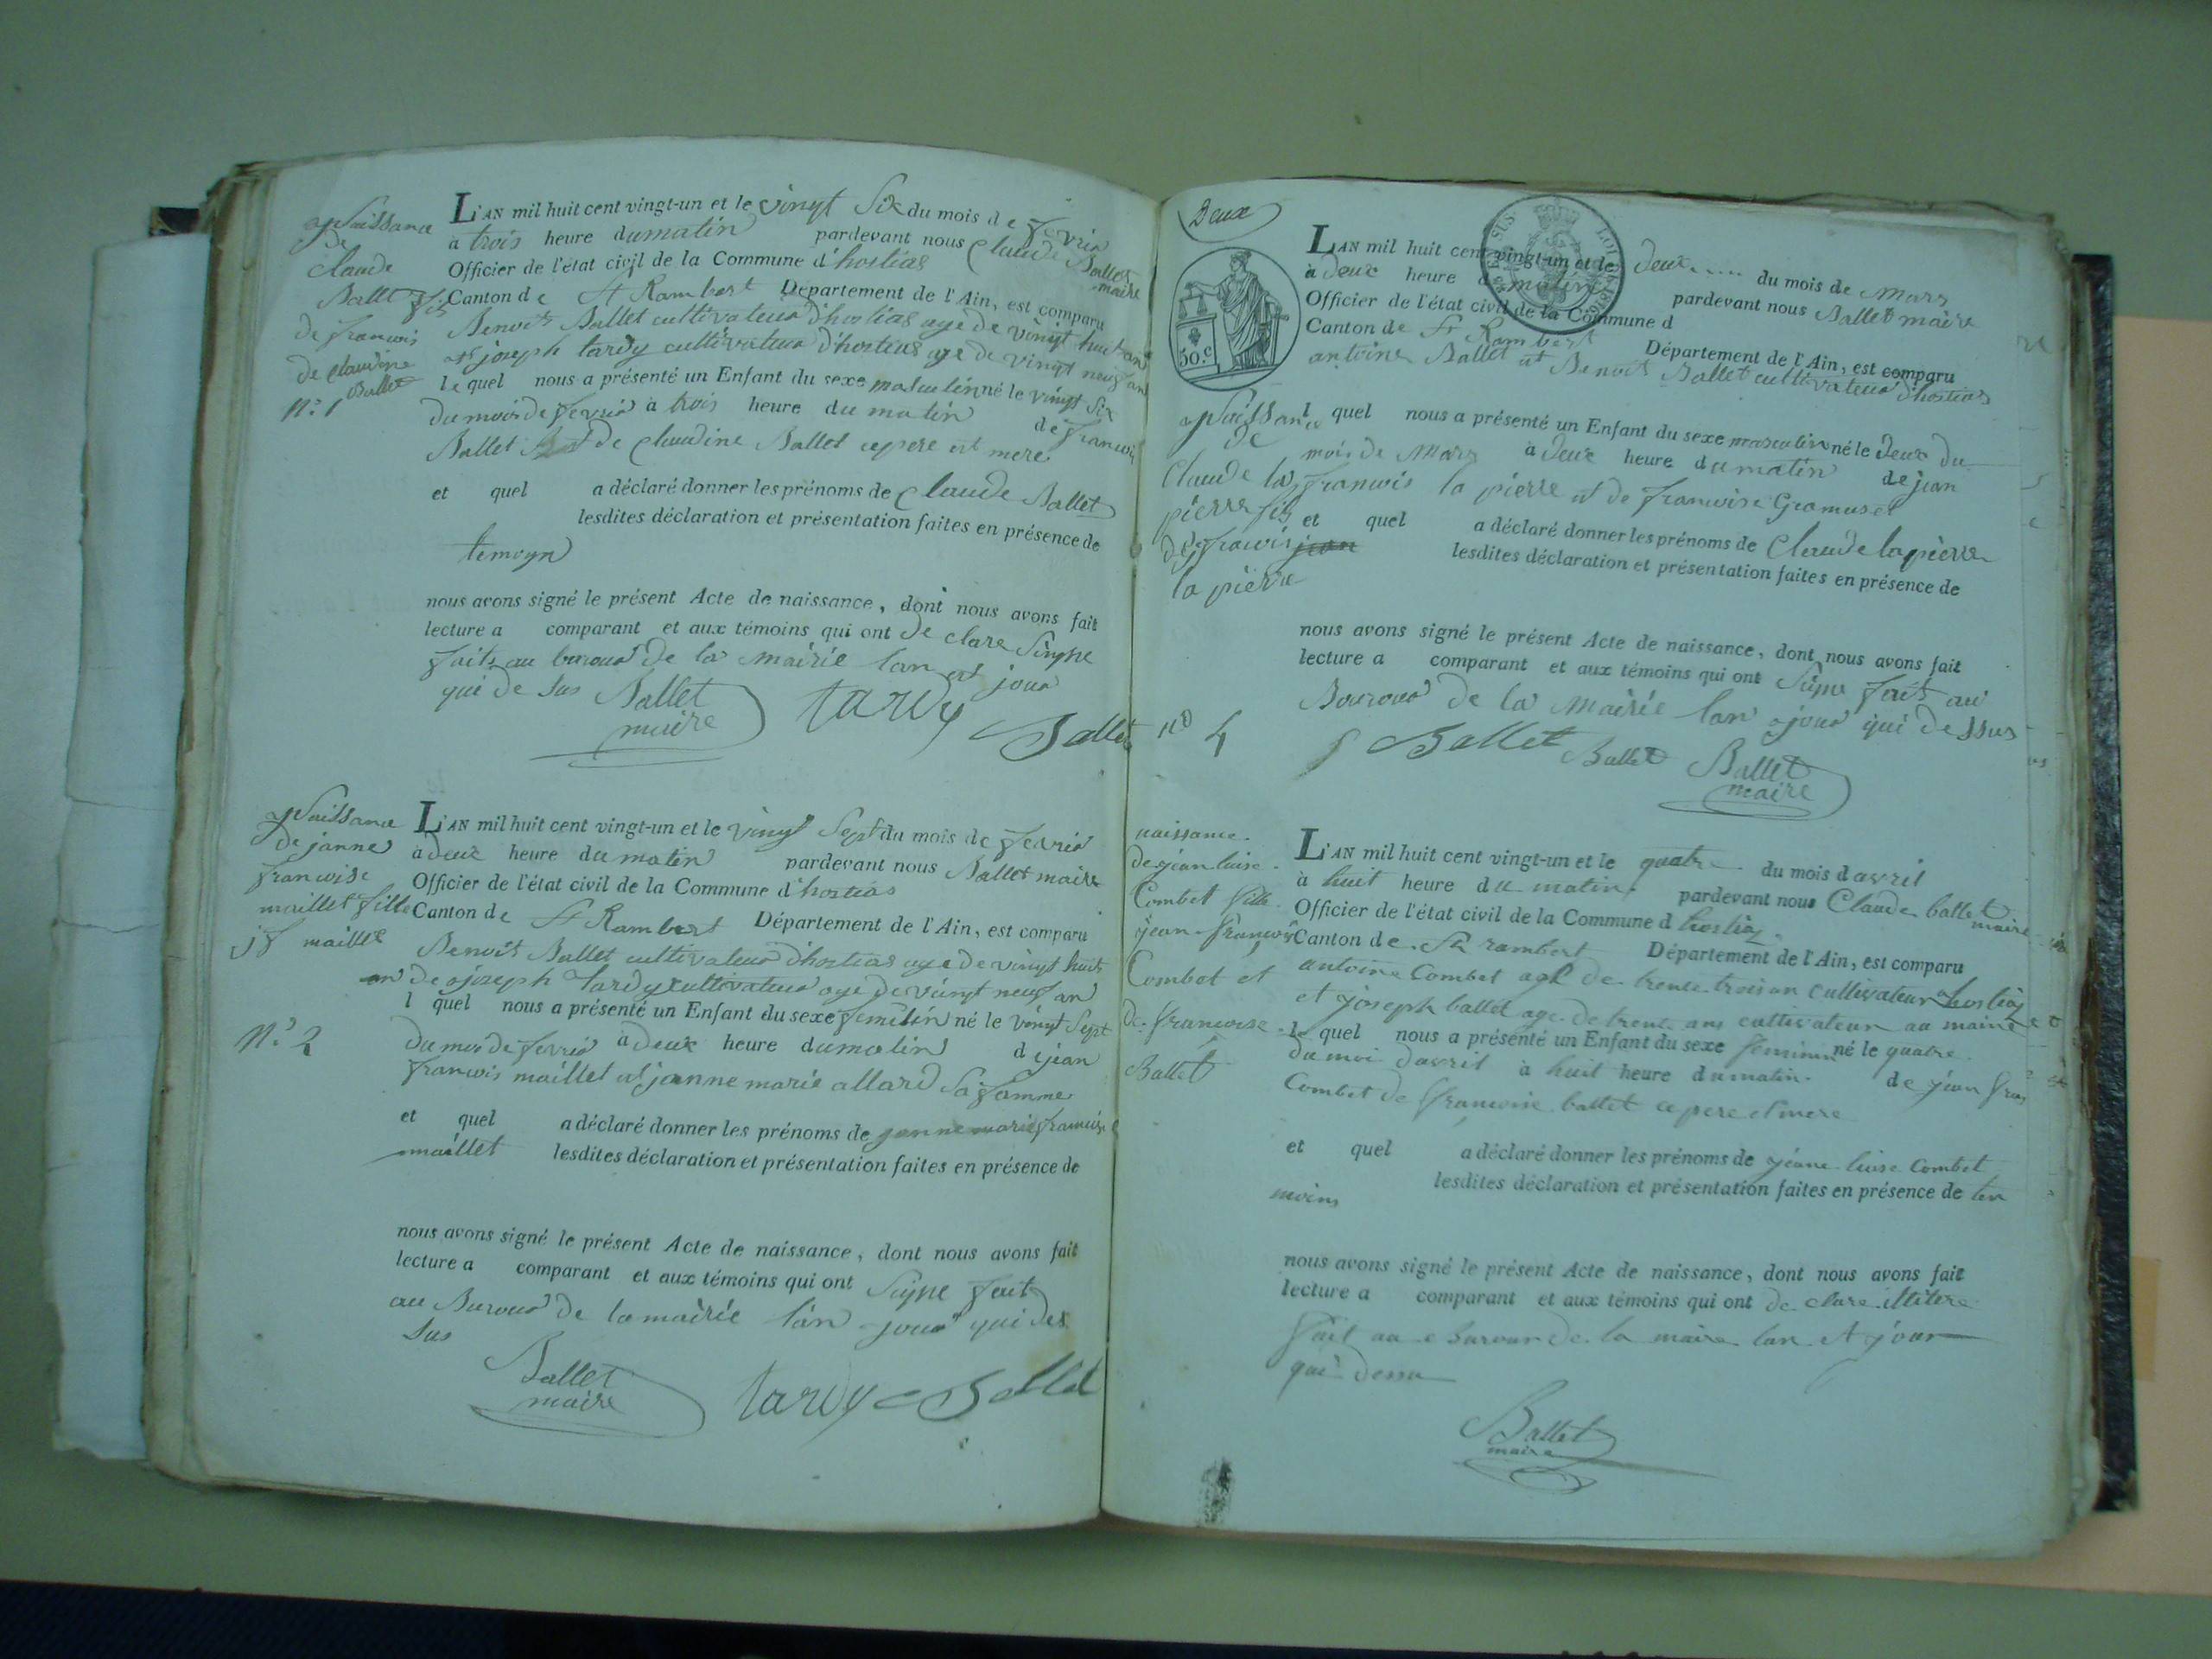 Naissance
de
claude
Ballet fils
de francois
de claudine
Ballet
N.º 1
L'AN mil huit cent vingt-un et le vingt Six du mois de fevrié
à trois heure du matin pardevant nous Claude Ballet maire
Officier de l'état civil de la Commune d'hostias
Canton de St Rambert Département de l'Ain, est comparu
Benoit Ballet cultivateur d'hostias agé de vingt huit an
et joseph tardy cultivateur d'hostias age de vingt neuf an
lequel nous a présenté un Enfant du sexe masculin né le vingt Six
du mois de fevrié à trois heure du matin de francois
Ballet et de Claudine Ballet ce pere et mere
et quel a déclaré donner les prénoms de Claude Ballet
lesdites déclaration et présentation faites en présence de
temoyn
nous avons signé le présent Acte de naissance, dont nous avons fait
lecture a comparant et aux témoins qui ont de clare Singne
fait au bureau de la mairie lan et jour
qui de sus Ballet
maire
tardy
Ballet
Naissance
de janne
francoise
maillet fille
jf maillet
N.º 2
L'AN mil huit cent vingt-un et le vingt Sept du mois de fevrié
à deux heure du matin pardevant nous Ballet maire
Officier de l'état civil de la Commune d'hostias
Canton de St Rambert Département de l'Ain, est comparu
Benoit Ballet cultivateur d'hostias age de vingt huit
an de joseph tardy cultivateur age de vingt neuf an
l quel nous a présenté un Enfant du sexe femelin né le vingt Sept
du mois de fevrié à deux heure du matin de jean
francois maillet et janne marie allard Sa famme
et quel a déclaré donner les prénoms de janne marie francoise
maillet lesdites déclaration et présentation faites en présence de
nous avons signé le présent Acte de naissance, dont nous avons fait
lecture a comparant et aux témoins qui ont Signe fait
au Bureau de la mairie l'an jour qui des
sus
Ballet
maire
tardy
Ballet
Deux
50.c
Naissance
de
Claude la
pierre fils
de francois jean
la pierre
nº 4
L'AN mil huit cent vingt-un et le deux du mois de mars
à deux heure du matin pardevant nous Ballet maire
Officier de l'état civil de la Commune d
Canton de St Rambert Département de l'Ain, est comparu
antoine Ballet et Benoit Ballet cultivateur d'hostias
l quel nous a présenté un Enfant du sexe masculin né le deux du
mois de mars à deux heure du matin de jean
francois la pierre et de francoise Gramusel
et quel a déclaré donner les prénoms de Claude lapierre
lesdites déclaration et présentation faites en présence de
nous avons signé le présent Acte de naissance, dont nous avons fait
lecture a comparant et aux témoins qui ont Signe fait au
Boureau de la Mairie lan jour qui dessus
Ballet Ballet Ballet
maire
naissance
de jean luise
Combet fille
jean françois
Combet et
de françoise
Ballet
L'AN mil huit cent vingt-un et le quatre du mois d avril
à huit heure du matin pardevant nous Claude ballet maire
Officier de l'état civil de la Commune d hostiaz
Canton de St rambert Département de l'Ain, est comparu
antoine Combet agé de trente trois an cultivateur a hostiaz
et joseph ballet age de trente ans cultivateur au maine
le quel nous a présenté un Enfant du sexe feminin né le quatre
du moi d'avril à huit heure du matin de jean fran
Combet de françoise ballet ce pere et mere
et quel a déclaré donner les prénoms de jéane luise Combet
lesdites déclaration et présentation faites en présence de tem
moins
nous avons signé le présent Acte de naissance, dont nous avons fait
lecture a comparant et aux témoins qui ont de clare illitere
fait au burau de la maire lan et jour
qui dessu
Ballet
maire